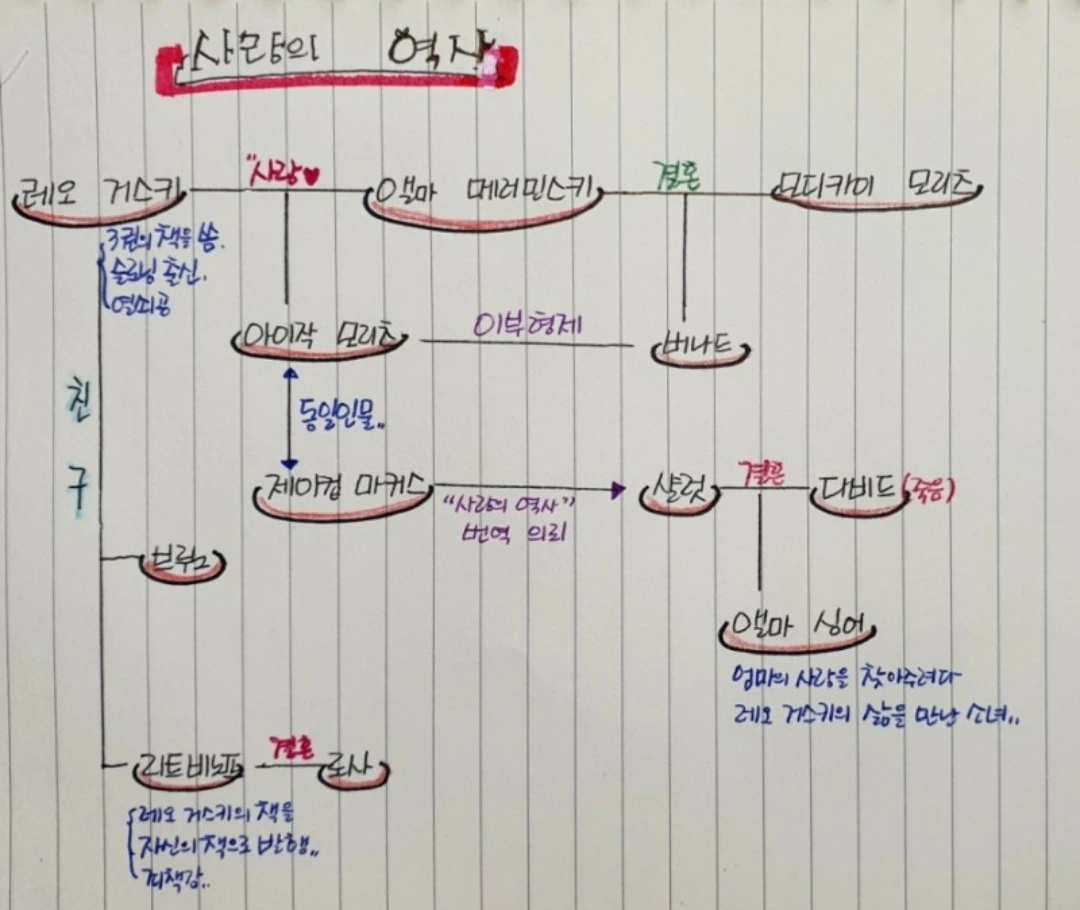 사랑의 역사
레오 거스키 "사랑♥ 앨마 메러민스키 결혼 모디카이 모리츠
3권의 책을 씀.
슬로님 출신.
열쇠공
아이작 모리츠 이부형제 버나드
친구
동일인물..
제이컵 마커스 "사랑의 역사" 번역 의뢰 샬럿 결혼 다비드 (죽음)
브루노
앨마 싱어
엄마의 사랑을 찾아주려다
레오 거스키의 삶을 만난 소녀..
리트비노프 결혼 로사
레오 거스키의 책을
자신의 책으로 발행..
죄책감..